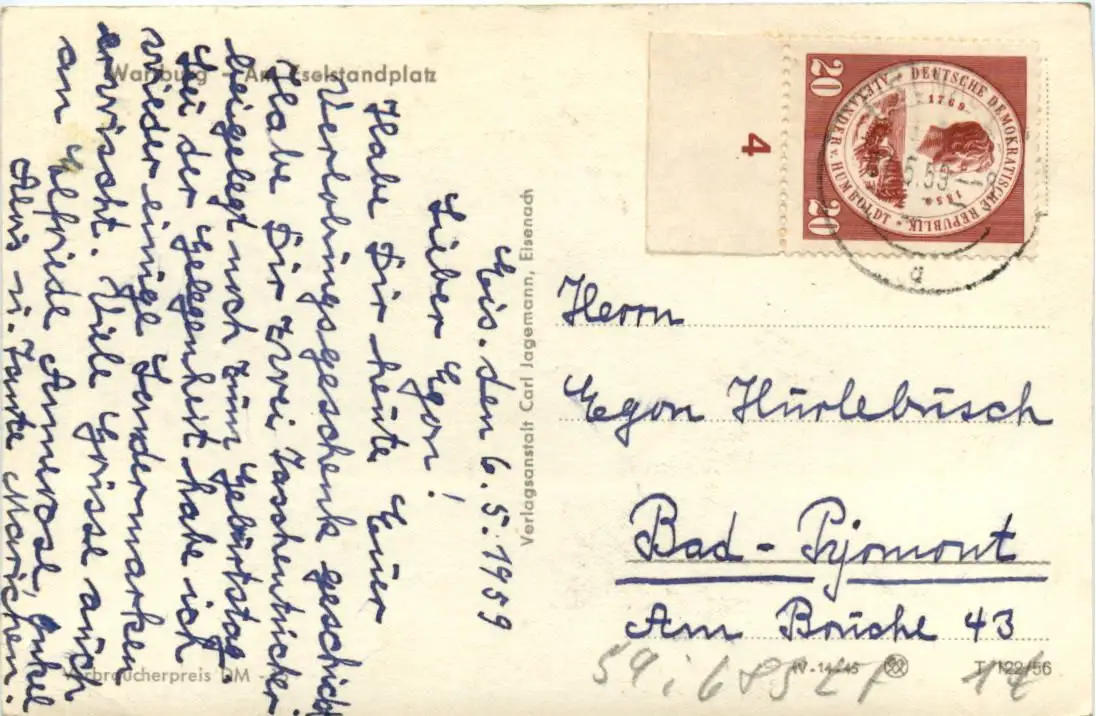 Wartburg - Am Eselstandplatz
Eis. den 6.5.1959
Lieber Egon!
Habe Dir heute Euer
Verlobungsgeschenk geschickt
Habe Dir zwei Taschentücher
beigelegt noch zum Gebürtstag.
bei der Gelegenheit habe ich
wieder einige Sondermarken
erwischt. Viele Grüsse auch
an Elfriede Annerose, Onkel
u. Tante Mariechen.
Verbraucherpreis DM
Verlagsanstalt Carl Jagemann, Eisenach
4
20
20
DEUTSCHE DEMOKRATISCHE REPUBLIK
ALEXANDER v. HUMBOLDT
1769
1859
5.59
a
Herrn
Egon Hürlebusch
Bad-Pyrmont
Am Bruche 43
IV-14-45
T 122/56
14